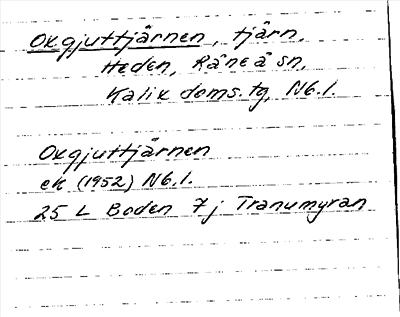 Oxgjuttjärnen, tjärn,
Heden, Råneå sn,
Kalix doms.tg, Nb.l.
Oxgjuttjärnen
ek (1952) Nb.l.
25 L Boden 7j Tranumyran